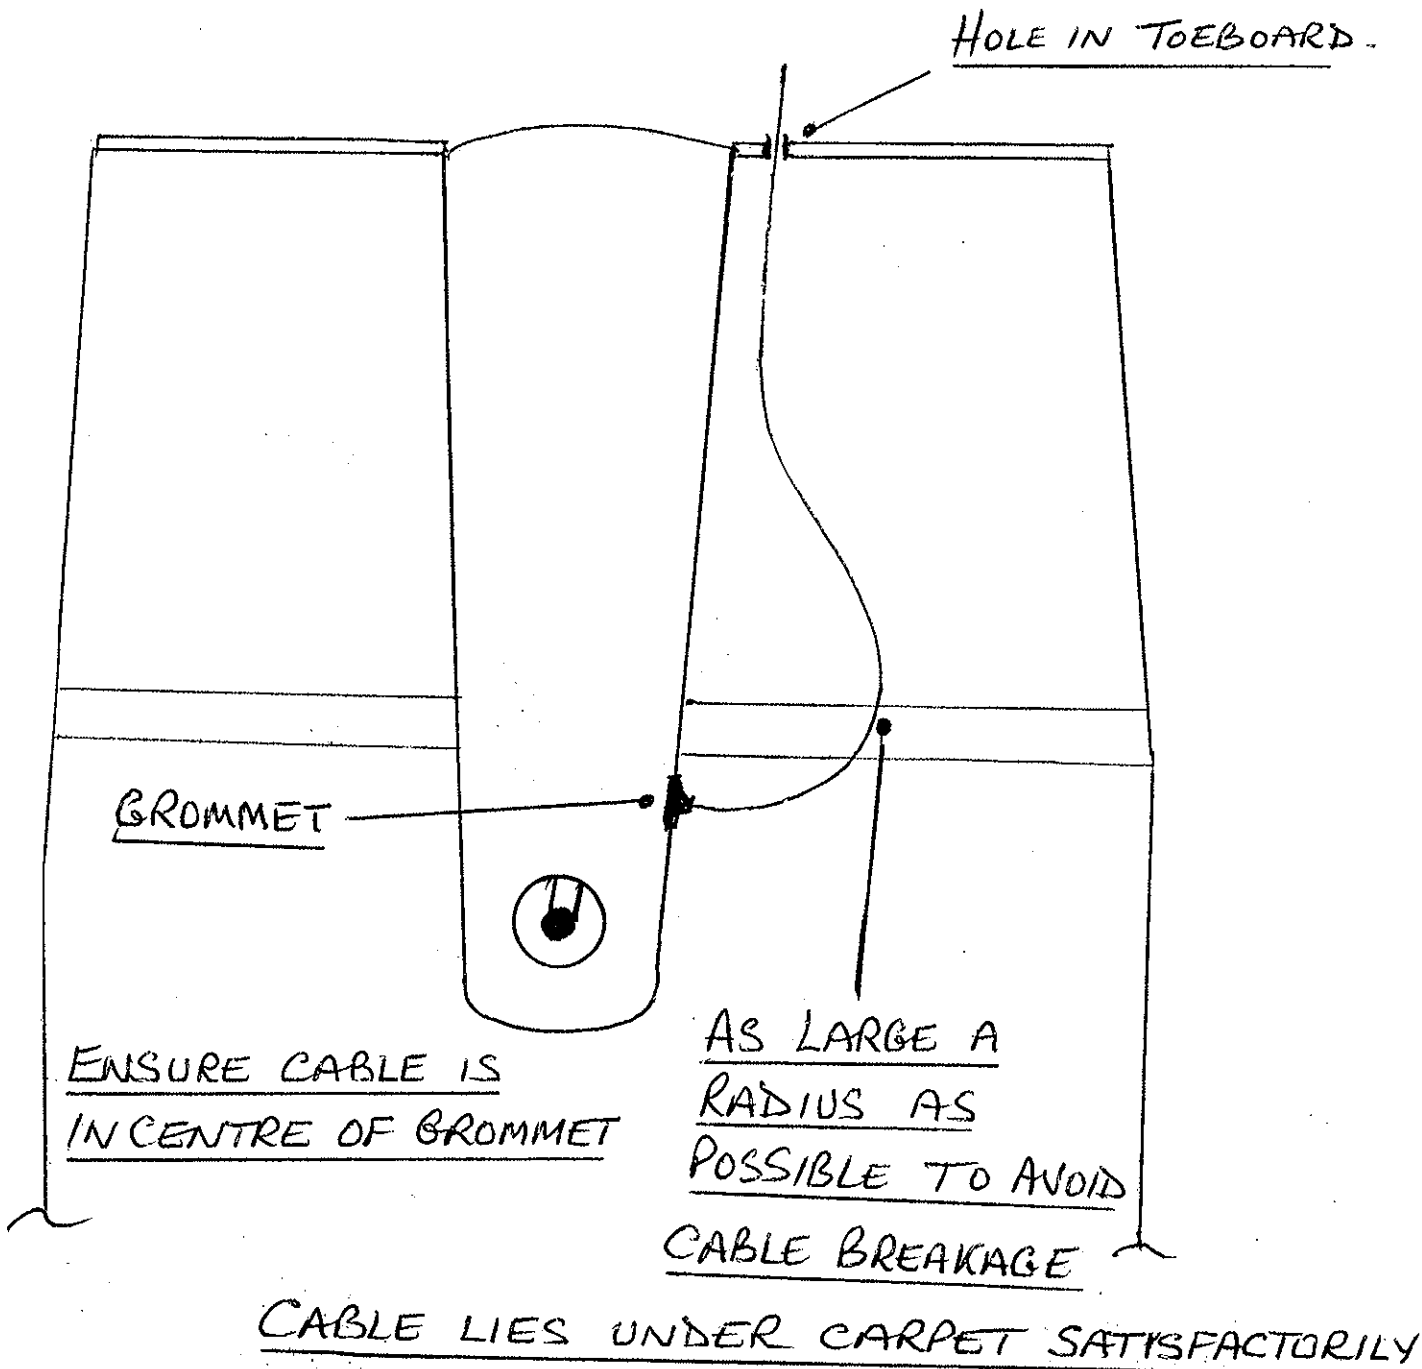 HOLE IN TOEBOARD.
GROMMET
ENSURE CABLE IS
IN CENTRE OF GROMMET
AS LARGE A
RADIUS AS
POSSIBLE TO AVOID
CABLE BREAKAGE
CABLE LIES UNDER CARPET SATISFACTORILY